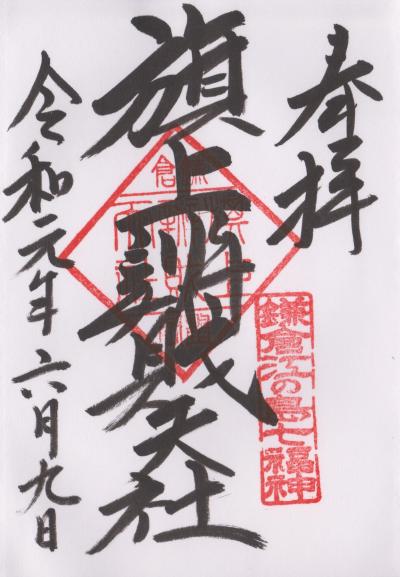 奉拝
旗上辨財天社
令和元年六月九日
鎌倉江の島七福神